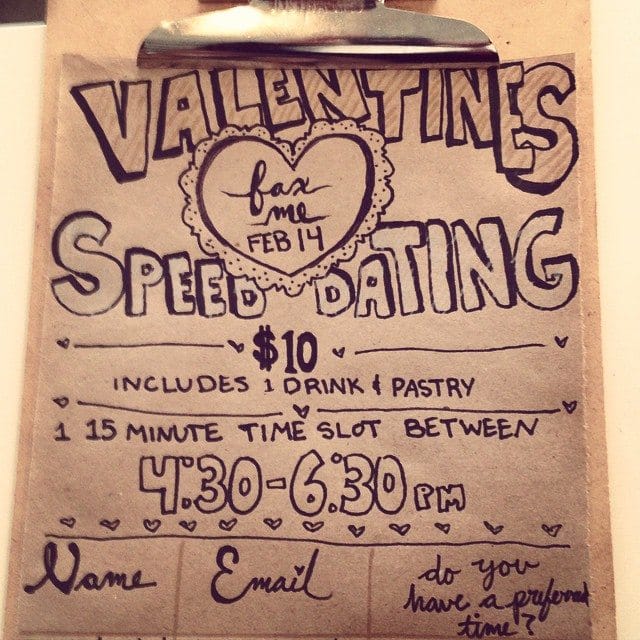 VALENTINES
fax
me
FEB 14
SPEED DATING
$10
INCLUDES 1 DRINK & PASTRY
1 15 MINUTE TIME SLOT BETWEEN
4:30-6:30 PM
Name Email do you
have a preferred
time?